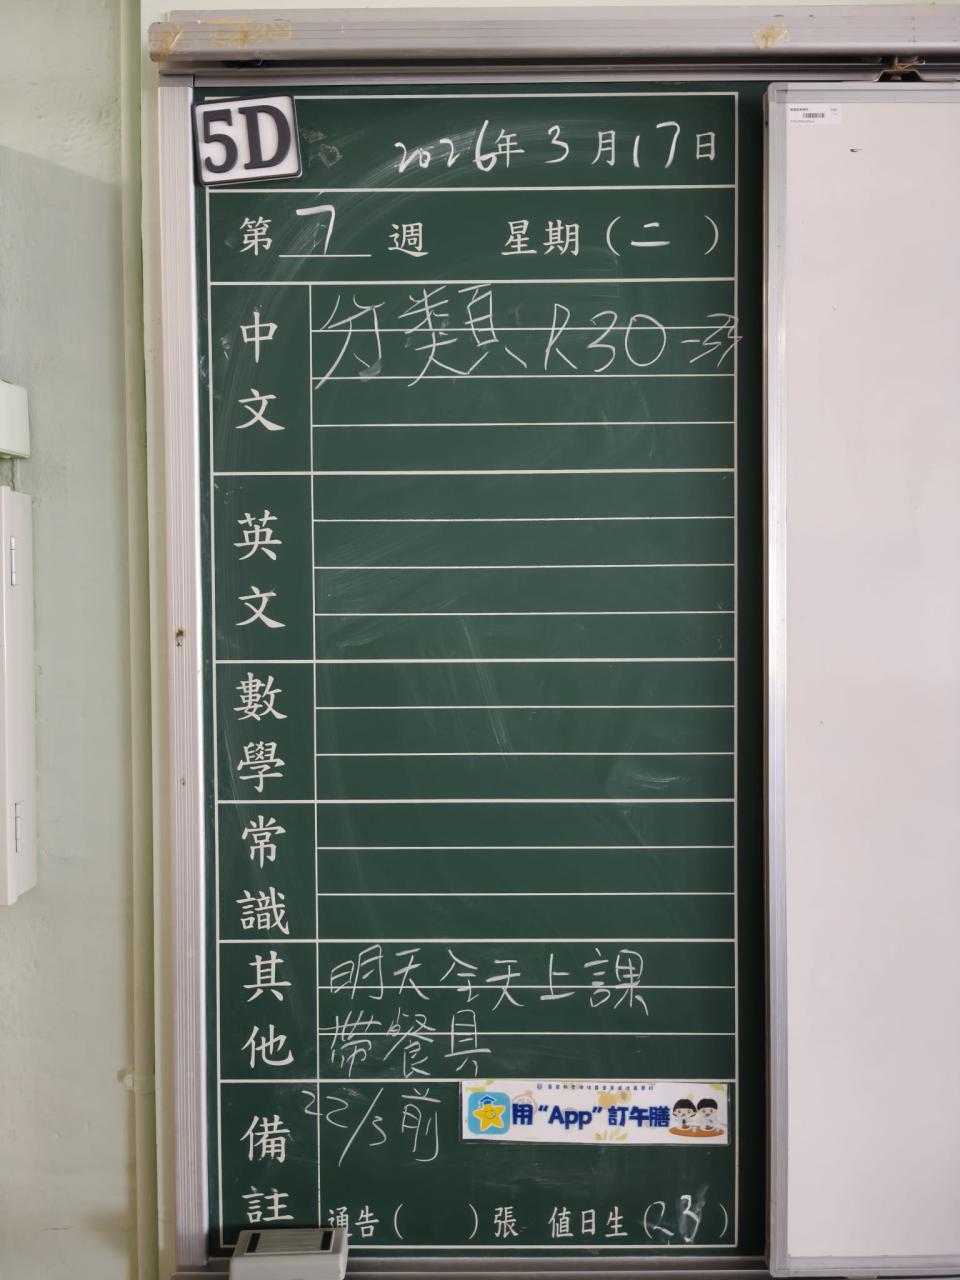 5D
2026年3月17日
第7週 星期(二)
中文
分類頁 P.30-33
英文
數學
常識
其他
明天全天上課
帶餐具
備註
22/3前
用“App”訂午膳
通告( )張 值日生(23)